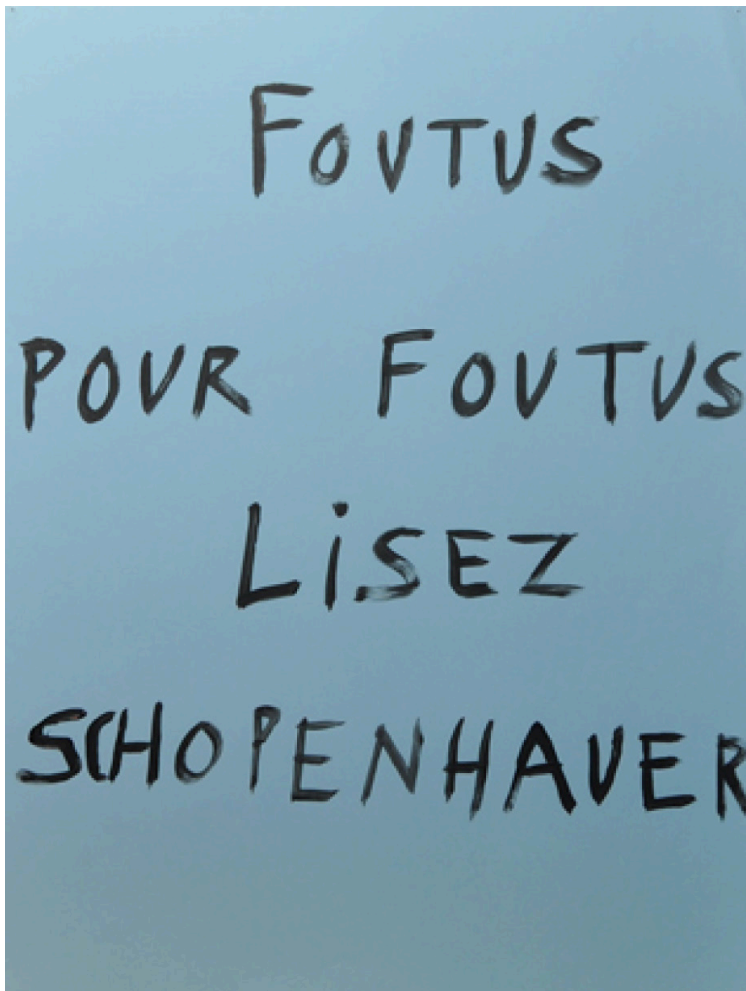 FOUTUS
POUR FOUTUS
LiSEZ
SCHOPENHAUER